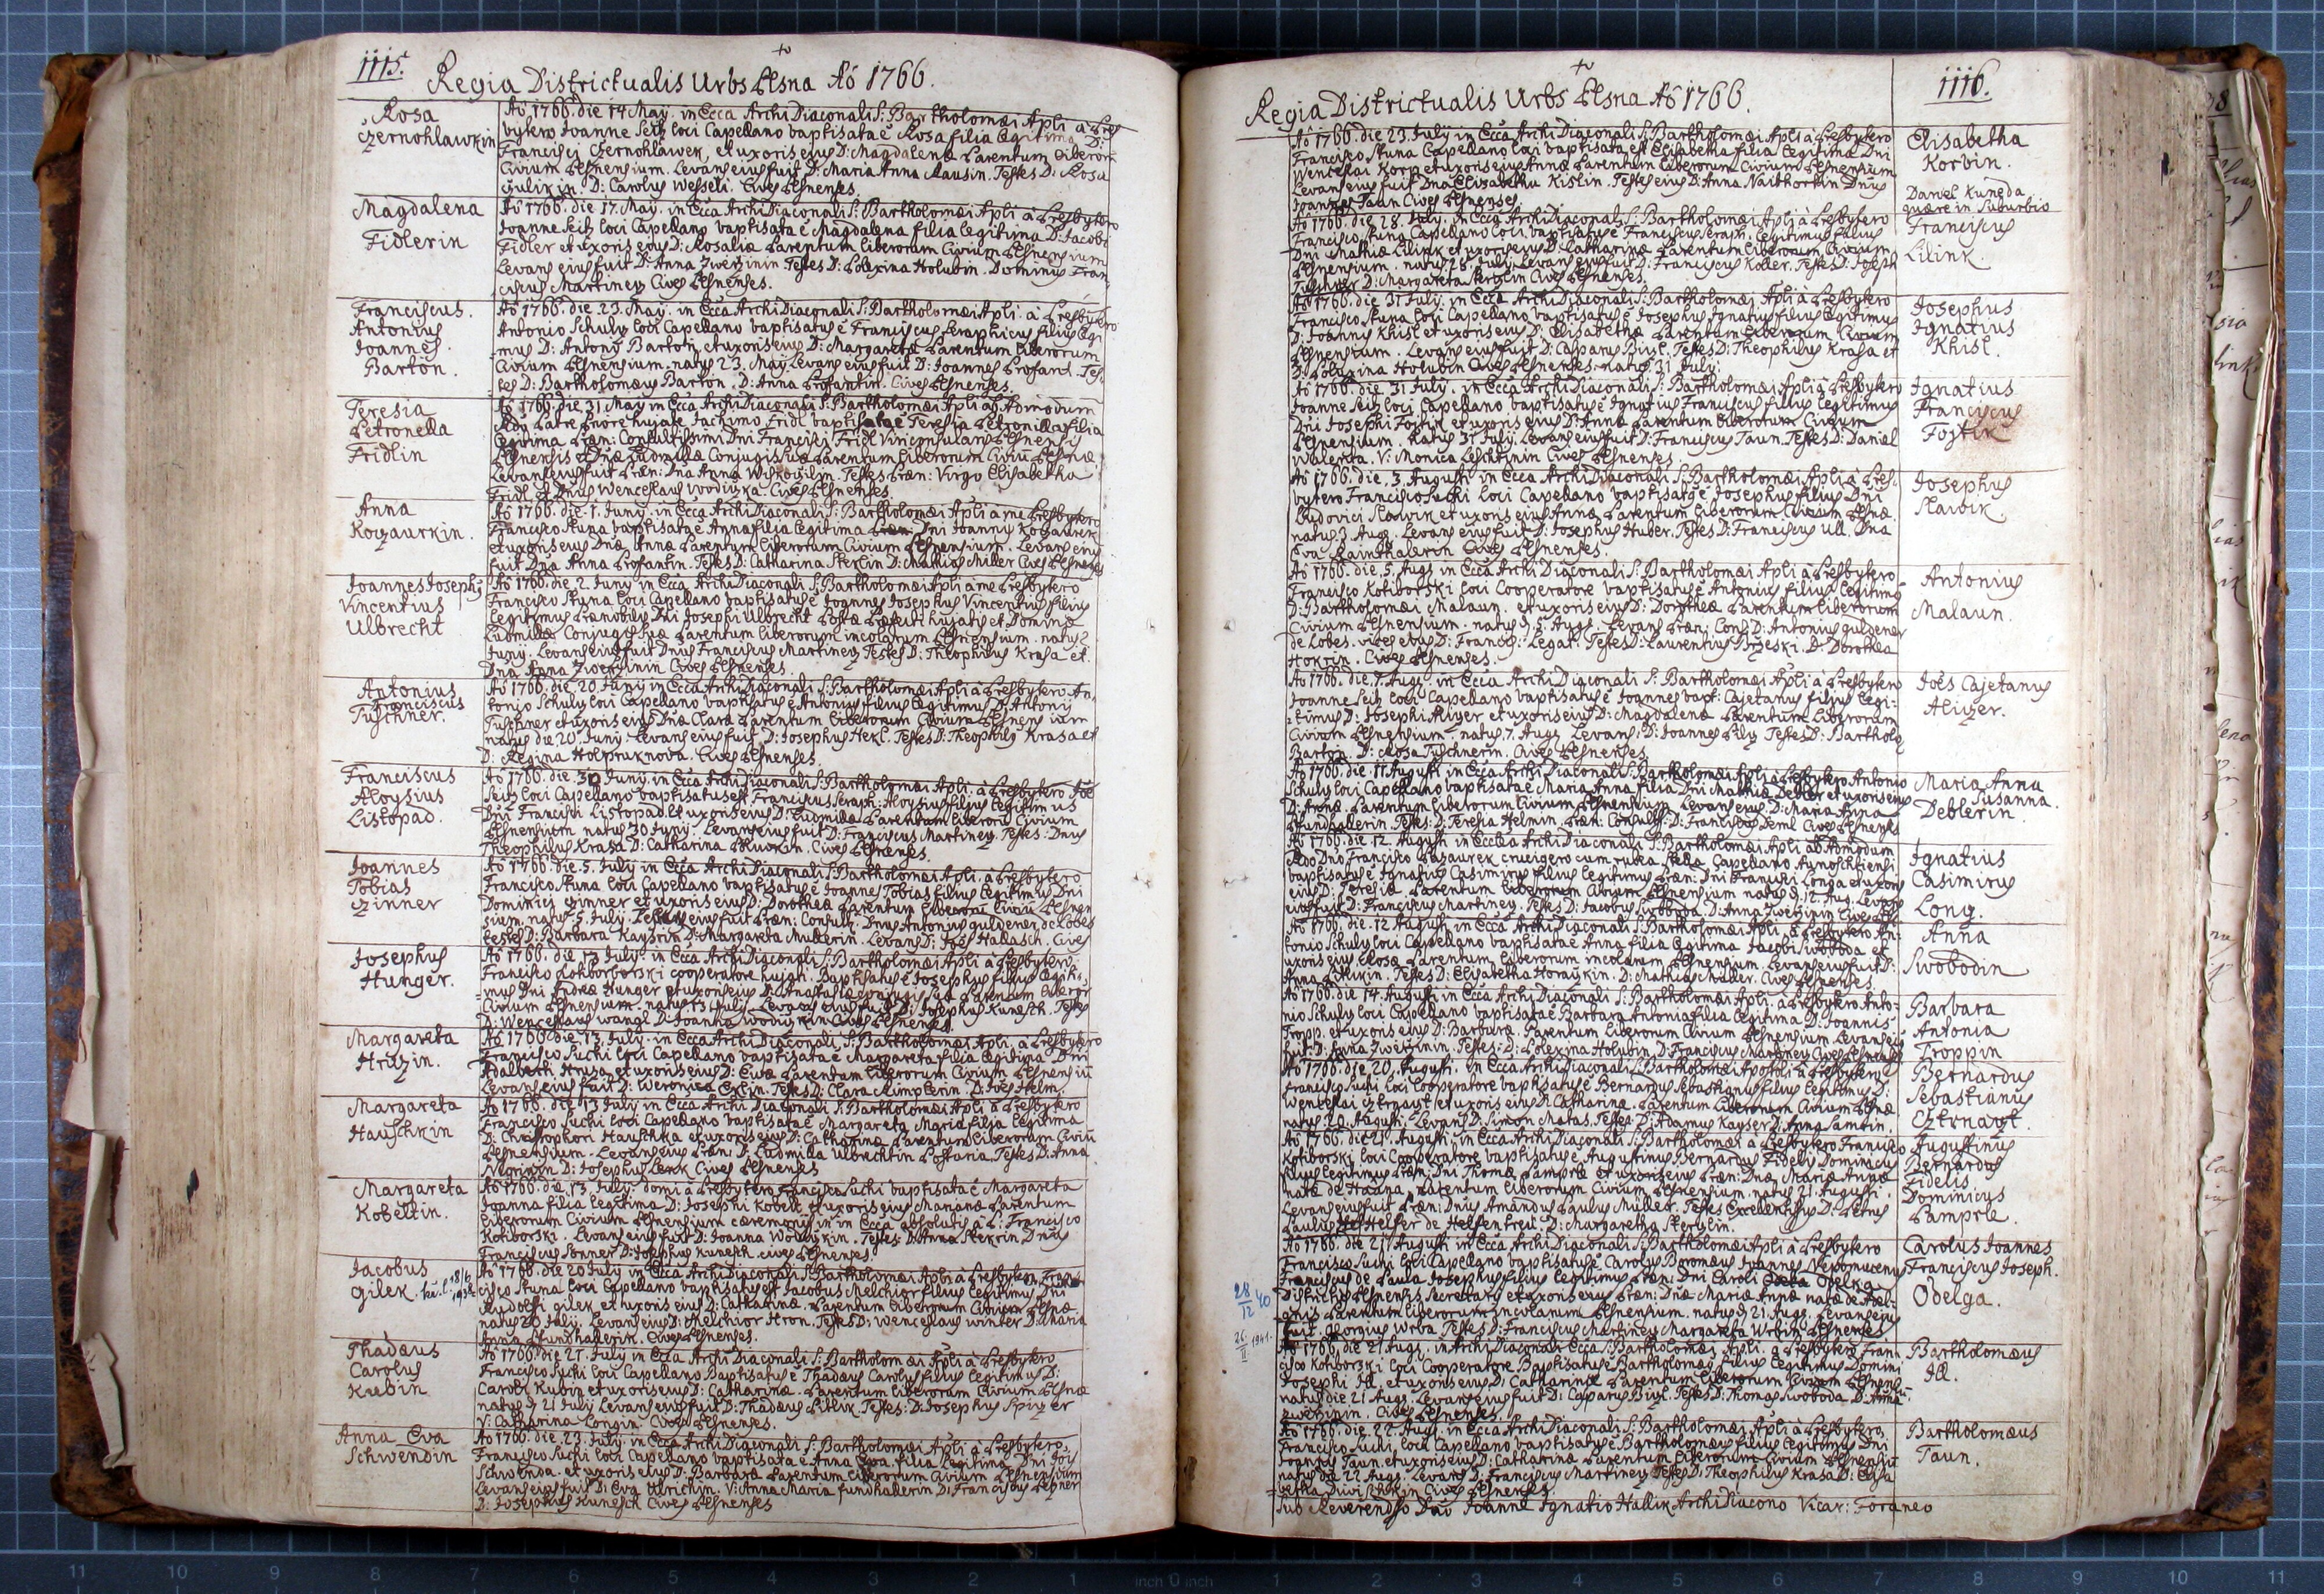 1115.
Regia Districtualis Urbs Plsna Aõ 1766.
Rosa
Czernohlawkin
Aõ 1766. die 14 May. in Ecca ArchiDiaconali S: Bartholomæi Apli à Pres
bytero Joanne Seitz loci Capellano baptisata ẽ Rosa filia legitima D:
Francisci Czernohlawek, et uxoris eius D: Magdalenæ Parentum liberor:
Civium Plsnensium. Levans eius fuit D: Maria Anna Rausin. Testes D: Rosa
D: Carolus Wesseli. Cives Plsnenses.
Magdalena
Fidlerin
Aõ 1766. die 17. May. in Ecca ArchiDiaconali S: Bartholomæi Apli à Presbytero
Joanne Seitz loci Capellano baptisata ẽ Magdalena filia legitima D: Jacobi
Fidler et uxoris eius D: Rosaliæ Parentum liberorum Civium Plsnensium
Levans eius fuit D: Anna Zwerzinin Testes D: Polexina Holubin. Dominus Fran
ciscus Martinez Cives Plsnenses.
Franciscus.
Antonius
Joannes.
Barton.
Aõ 1766. die 23. May. in Ecca ArchiDiaconali S: Bartholomæi Apli. à Presbytero
Antonio Schulz loci Capellano baptisatus ẽ Franciscus Seraphicus filius legi
mus D: Antonÿ Barton, et uxoris eius D: Margaretæ Parentum liberorum
Civium Plsnensium. natus 23. May. Levans eius fuit D: Joannes Profant. Tes
tes D: Bartholomæus Barton. D: Anna Profantin. Cives Plsnenses.
Teresia
Petronella
Fridlin
Aõ 1766. die 31 May in Ecca ArchiDiaconali S: Bartholomæi Apli ab Admodum
baptisata ẽ Teresia Petronilla filia
legitima Præn: Consultissimi Dni Francisci Fridl
Plsnensis et Dnæ Ludmillæ Conjugis suæ Parentum liberorum Civiũ Plsnæ.
Levans eius fuit Præn: Dna Anna Testes Præn: Virgo Elisabetha
Fridl et Dnus Wenceslaus Wodizka. Cives Plsnenses.
Anna
Kozaurkin.
Aõ 1766. die. 1. Junÿ. in Ecca ArchiDiaconali S: Bartholomæi Apli à me Presbytero
Francisco Stuna baptisata ẽ Anna filia legitima Dni Joannis Kozaurek
et uxoris eius Dnæ Annæ Parentum liberorum Civium Plsnensium. Levans eius
fuit Dna Anna Profantin. Testes D: Catharina Sterlin D: Mathias Miller Cives Plsnenses
Joannes Josephus
Vincentius
Ulbrecht
Aõ 1766. die 2. Junÿ in Ecca ArchiDiaconali S: Bartholomæi Apli à me Presbytero
Francisco Stuna loci Capellano baptisatus ẽ Joannes Josephus Vincentius filius
legitimus Prænobilis Dni Josephi Ulbrecht Postæ Præfecti huiatis et Dominæ
Ludmillæ Conjugis suæ Parentum liberorum incolarum Plsnensium. natus 2.
Junÿ. Levans eius fuit Dnus Franciscus Martinez Testes D: Theophilus Krasa et
Dna Anna Zwerzinin Cives Plsnenses.
Antonius
Franciscus
Tuschner.
Aõ 1766. die. 20. Junÿ in Ecca ArchiDiaconali S: Bartholomæi Apli à Presbytero An
tonio Schulz loci Capellano baptisatus ẽ Antonius filius legitimus D: Antonÿ
Tuschner et uxoris eius Dnæ Claræ Parentum liberorum Civium Plsnensium
natus die 20. Junÿ. Levans eius fuit D: Josephus Hekl. Testes D: Theophilus Krasa et
D: Regina Holzpruknova. Cives Plsnenses.
Franciscus
Aloysius
Listopad.
Aõ 1766. die. 30 Junÿ. in Ecca ArchiDiaconali S: Bartholomæi Apli: à Presbytero Joe
Seitz loci Capellano baptisatus est Franciscus Seraph: Aloysius filius legitimus
Dni Francisci Listopad. et uxoris eius D: Ludmillæ Parentum liberorũ Civium
Plsnensium natus 30 Junÿ. Levans eius fuit D: Franciscus Martinez. Testes: Dnus
Theophilus Krasa D: Catharina Cives Plsnenses.
Joannes
Tobias
Czinner
Aõ 1766. die. 5. July in Ecca ArchiDiaconali S: Bartholomæi Apli. à Presbytero
Francisco Stuna loci Capellano baptisatus ẽ Joannes Tobias filius legitimus Dni
Dominici Czinner et uxoris eius D: Dorotheæ Parentum liberorũ Civiũ Plsnen
sium. natus 5. July. eius fuit Præn: Consult: Dnus Antonius guldener de Lobes
testes D: Barbara Kaysrin D: Margareta Mullerin. Levans D: Joës Hallasch. Cives
Josephus
Hunger.
Aõ 1766. die. 13 July. in Ecca ArchiDiaconali S: Bartholomæi Apli à Presbytero
Francisco cooperatore huiati. Baptisatus ẽ Josephus filius legiti-
mus Dni Andreæ Hunger et uxoris eius D: Anastasiæ conjugis suæ Parentum liberor
Civium Plsnensium. natus 13 July. Levans eius fuit D: Josephus Kunesch. Testes
D: Wenceslaus wangl D: Joanna Wodizkin Cives Plsnenses.
Margareta
Hrizin.
Aõ 1766 die. 13. July. in Ecca ArchiDiaconali, S: Bartholomæi Apli. à Presbytero
Francisco Suchi loci Capellano baptisata ẽ Margareta filia legitima Dni
Adalberti Hrusa, et uxoris eius D: Evæ Parentum liberorum Civium Plsnensiũ
Levans eius fuit D: Weronica Erlin. Testes D: Clara Rimplerin. D: Joës Helm.
Margareta
Hauschkin
Aõ 1766. die 13 July in Ecca ArchiDiaconali S: Bartholomæi Apli à Presbytero
Francisco Suchi loci Capellano baptisata ẽ Margareta Maria filia legitima
D: Christophori Hauschka et uxoris eius D: Catharinæ Parentum liberorum Civiũ
Plsnensium. Levans eius Præn: D: Ludmilla Ulbrechtin Postaria. Testes D: Anna
D: Josephus Lenk Cives Plsnenses
Margareta
Kobeltin.
Aõ 1766. die. 13. July. domi à Presbytero Francisco Suchi baptisata ẽ Margareta
Joanna filia legitima D: Josephi Kobelt et uxoris eius Marianæ Parentum
liberorum Civium Plsnensium cæremonÿs in Ecca absolutis à P: Francisco
Kotiborski. Levans eius fuit D: Joanna Wodizkin. Testes: D: Anna Stekrin Dnus
Franciscus Ponner D: Josephus Kunesch. cives Plsnenses.
Jacobus
gilek.
Aõ 1766. die 20 July in Ecca ArchiDiaconali S: Bartholomæi Apli à Presbytero Fran
cisco Stuna loci Capellano baptisatus est Jacobus Melchior filius legitimus Dni
Rudolfi gilek et uxoris eius D: Catharinæ Parentum liberorum Civium Plsnæ.
natus 20 July. Levans eius D: Melchior Hron. Testes D: Wenceslaus winter D: Maria
Anna Cives Plsnenses.
Thadæus
Carolus
Kubin
Aõ 1766. die 21. July in Ecca ArchiDiaconali S: Bartholomæi Apli à Presbytero
Francisco Suchi loci Capellano Baptisatus ẽ Thadæus Carolus filius legitimus D:
Caroli Kubin et uxoris eius D: Catharinæ. Parentum liberorum Civium Plsnæ
natus 21 July Levans eius fuit D: Thadæus Pitlik. Testes: D: Josephus
V: Catharina Longin. Cives Plsnenses.
Anna Eva
Schwendin
Aõ 1766. die. 23. July. in Ecca ArchiDiaconali S: Bartholomæi Apli à Presbytero
Francisco Suchi loci Capellano baptisata ẽ Anna Eva filia legitima Dni Jois
Schwenda. et uxoris eius D: Barbaræ Parentum liberorum Civium Plsnensium
Levans eius fuit D: Eva Ulrichin. V: Anna Maria D: Franciscus
D: Josephus Kunesch Cives Plsnenses
Regia Districtualis Urbs Plsna Aõ 1766.
1116.
Aõ 1766. die 23. July in Ecca ArchiDiaconali S: Bartholomæi Apli à Presbytero
Francisco Stuna Capellano loci baptisata est Elisabetha filia legitima Dni
Wenceslai Korb et uxoris eius Annæ Parentum liberorum Civium Plsnensium
Levans eius fuit Dna Elisabetha Kislin. Testes eius D: Anna Dnus
Joannes Taun Cives Plsnenses
Elisabetha
Korbin.
Daniel Kuneda
quære in Suburbio
Aõ 1766. die 28. July. in Ecca ArchiDiaconali S: Bartholomæi Apli à Presbytero
Francisco Stuna Capellano loci baptisatus ẽ Franciscus Seraph. legitimus filius
Dni Mathiæ Lilink et uxoris eius D: Catharinæ Parentum liberorum Civium
Plsnensium. natus 28 July. Levans eius fuit D: Franciscus Koller. Testes D: Joseph
D: Margareta Cives Plsnenses.
Franciscus
Lilink.
Aõ 1766. die 31 July. in Ecca ArchiDiaconali S: Bartholomæi Apli à Presbytero
Francisco Stuna loci Capellano baptisatus ẽ Josephus Ignatius filius legitimus
D: Joannis Khisl et uxoris eius D: Elisabethæ Parentum liberorum Civium
Plsnensium. Levans eius fuit D: Casparus Testes D: Theophilus Krasa et
D: Polexina Holubin Cives Plsnenses. natus 31 July.
Josephus
Ignatius
Khisl.
Aõ 1766. die. 31 July. in Ecca ArchiDiaconali S: Bartholomæi Apli à Presbytero
Joanne Seitz loci Capellano baptisatus ẽ Ignatius Franciscus filius legitimus
Dni Josephi Fojtik et uxoris eius D: Annæ Parentum liberorum Civium
Plsnensium. Natus 31 July. Levans eius fuit D: Franciscus Taun. Testes D: Daniel
V: Monica Cives Plsnenses.
Ignatius
Franciscus
Fojtik
Aõ 1766. die. 3. Augusti in Ecca ArchiDiaconali S: Bartholomæi Apli à Pres-
bytero Francisco Suchi loci Capellano baptisatus ẽ Josephus filius Dni
Ludovici Slawik et uxoris eius Annæ Parentum liberorum Civium Plsnæ.
natus 3 Aug. Levans eius fuit D: Josephus Huber. Testes D: Franciscus Ull. Dna
Eva Rainthalerin Cives Plsnenses.
Josephus
Slawik.
Aõ 1766. die. 5. Augs in Ecca ArchiDiaconali S: Bartholomæi Apli à Presbytero
Francisco Kotiborski loci Cooperatore baptisatus ẽ Antonius filius legitimus
D: Bartholomæi Malaun. et uxoris eius D: Dorotheæ Parentum liberorum
Civium Plsnensium. natus 5 Aug. Levans Præn: Cons: D: Antonius guldener
de Lobes. vices ejus D: Francis: Legat. Testes D: Laurentius Brzeski. D: Dorothea
Hokrin. Cives Plsnenses.
Antonius
Malaun.
Aõ 1766. die. 7. Aug. in Ecca ArchiDiaconali S: Bartholomæi Apli à Presbytero
Joanne Seitz loci Capellano baptisatus ẽ Joannes bapt: Cajetanus filius legi-
timus D: Josephi et uxoris eius D: Magdalenæ Parentum liberorum
Civium Plsnensium. natus 7. Aug. Levans: D: Joannes Pilz Testes D: Barthole
Barton D: Rosa Tuschnerin. Cives Plsnenses.
Joës Cajetanus
Alizer.
Aõ 1766. die. 11 Augusti in Ecca ArchiDiaconali S: Bartholomæi Apli à Presbytero Antonio
Schulz loci Capellano baptisata ẽ Maria Anna filia Dni Mathiæ Debler et uxoris eius
D: Annæ Parentum liberorum Civium Plsnensium Levans eius D: Maria Anna
Testes. D: Teresia Helmin Præn: Consult: D: Franciscus Deml Cives Plsnenses
Maria Anna
Susanna.
Deblerin.
Aõ 1766. die. 12. Augusti in Ecclea ArchiDiaconali S: Bartholomæi Apli ab Admodum
Rdo Dno Francisco Lazaurek crucigero cum rubra stella Capellano
baptisatus ẽ Ignatius Casimirus filius legitimus Præn: Dni Francisci Longa et uxoris
eius D: Teresiæ Parentum liberorum Civium Plsnensium natus 12. Aug. Levans
eius fuit D: Franciscus Martinez. Testes D: Jacobus Swoboda. D: Anna Zwerzinin Cives Pls
Ignatius
Casimirus
Long.
Aõ 1766. die. 12 Augusti in Ecca ArchiDiaconali S: Bartholomæi Apli. à Presbytero An-
tonio Schulz loci Capellano baptisata ẽ Anna filia legitima Jacobi Swoboda et
uxoris eius Rosæ Parentum liberorum incolarum Plsnensium. Levans eius fuit D:
Anna Pitlikin. Testes D: Elisabetha Horazkin. D: Mathias Miller. Cives Plsnenses.
Anna
Swobodin
Aõ 1766. die 14. Augusti. in Ecca ArchiDiaconali S: Bartholomæi Apli. à Presbytero Anto-
nio Schulz loci Capellano baptisata ẽ Barbara Antonia filia legitima D: Joannis-
Tropp. et uxoris eius D: Barbaræ. Parentum liberorum Civium Plsnensium. Levans eius
fuit. D: Anna Zwerzinin. Testes: D: Polexina Holubin. D: Franciscus Martinez Cives Plsnenses
Barbara
Antonia
Troppin
Aõ 1766. die 20. Augusti. in Ecca ArchiDiaconali S: Bartholomæi Apostoli à Presbytero
Francisco Suchi loci Cooperatore baptisatus ẽ Bernardus Sebastianus filius legitimus D:
Wenceslai Cztrnaczt et uxoris eius D: Catharinæ. Parentum liberorum Civium Plsnæ
natus 20. Augusti. Levans D: Simon Matas. Testes D: Adamus Kayser D: Anna Samtin.
Bernardus
Sebastianus
Cztrnaczt.
Aõ 1766. die 21. Augusti. in Ecca ArchiDiaconali S: Bartholomæi à Presbytero Francisco
Kotiborski loci Cooperatore baptisatus ẽ Augustinus Bernardus Fidelis Dominicus
filius legitimus Præn: Dni Thomæ Lamprle et uxoris eius Præn: Dnæ Mariæ Annæ
natæ de Haana. Parentum liberorum Civium Plsnensium. natus 21. Augusti.
Levans eius fuit Præn: Dnus Amandus Paulus Müller. Testes Excellentissus D: Petrus
Paulus Helffer de Helffentreü. D: Margaretha Sterzlin.
Augustinus
Bernardus
Fidelis
Dominicus
Lamprle.
Aõ 1766. die 21. Augusti in Ecca ArchiDiaconali S: Bartholomæi Apli à Presbytero
Francisco Suchi loci Capellano baptisatus ẽ Carolus Boromæus Joannes Nepomucenus
Franciscus de Paula Josephus filius legitimus Præn: Dni Caroli Odelga
Districtus Plsnensis Secretarÿ et uxoris eius Præn: Dnæ Mariæ Annæ natæ de Adel-
Parentum liberorum incolarum Plsnensium. natus 21. Aug. Levans eius
fuit. Georgius Wrba Testes D: Franciscus Martinez Margareta Wrbin Plsnenses
Carolus Joannes
Franciscus Joseph.
Odelga.
28/12 40
26/II 1941.
Aõ 1766. die 21 Aug. in ArchiDiaconali Ecca S: Bartholomæi Apli. à Presbytero Fran-
cisco Kotiborski loci Cooperatore Baptisatus ẽ Bartholomæus filius legitimus Domini
Josephi Jll. et uxoris eius D: Catharinæ Parentum liberorum Civium Plsnens
natus die 21 Aug. Levans eius fuit D: Casparus Testes D: Thomas Swoboda D: Anna
Zwerzinin. Cives Plsnenses.
Bartholomæus
Jll.
Aõ 1766. die. 22. Aug. in Ecca ArchiDiaconali S: Bartholomæi Apli à Presbytero
Francisco Suchi loci Capellano baptisatus ẽ Bartholomæus filius legitimus Dni
Joannis Taun. et uxoris eius D: Catharinæ Parentum liberorum Civium Plsnensiũ
natus die 22 Aug. Levans D: Franciscus Martinez Testes D: Theophilus Krasa D: Elisa
betha Cives Plsnenses.
Bartholomæus
Taun.
sub Reverendisso Dno Joanne Ignatio Hallik ArchiDiacono Vicar: Foraneo